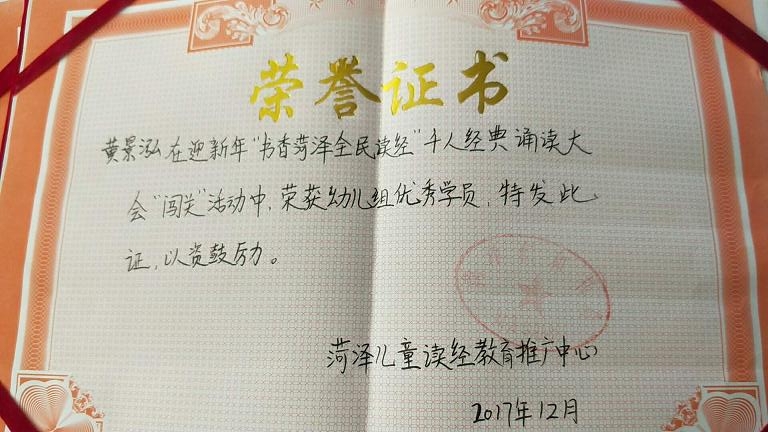 荣誉证书
黄景泓在迎新年"书香菏泽全民读经"千人经典诵读大
会"闯关"活动中,荣获幼儿组优秀学员,特发此
证,以资鼓厉。
菏泽儿童读经教育推广中心
2017年12月